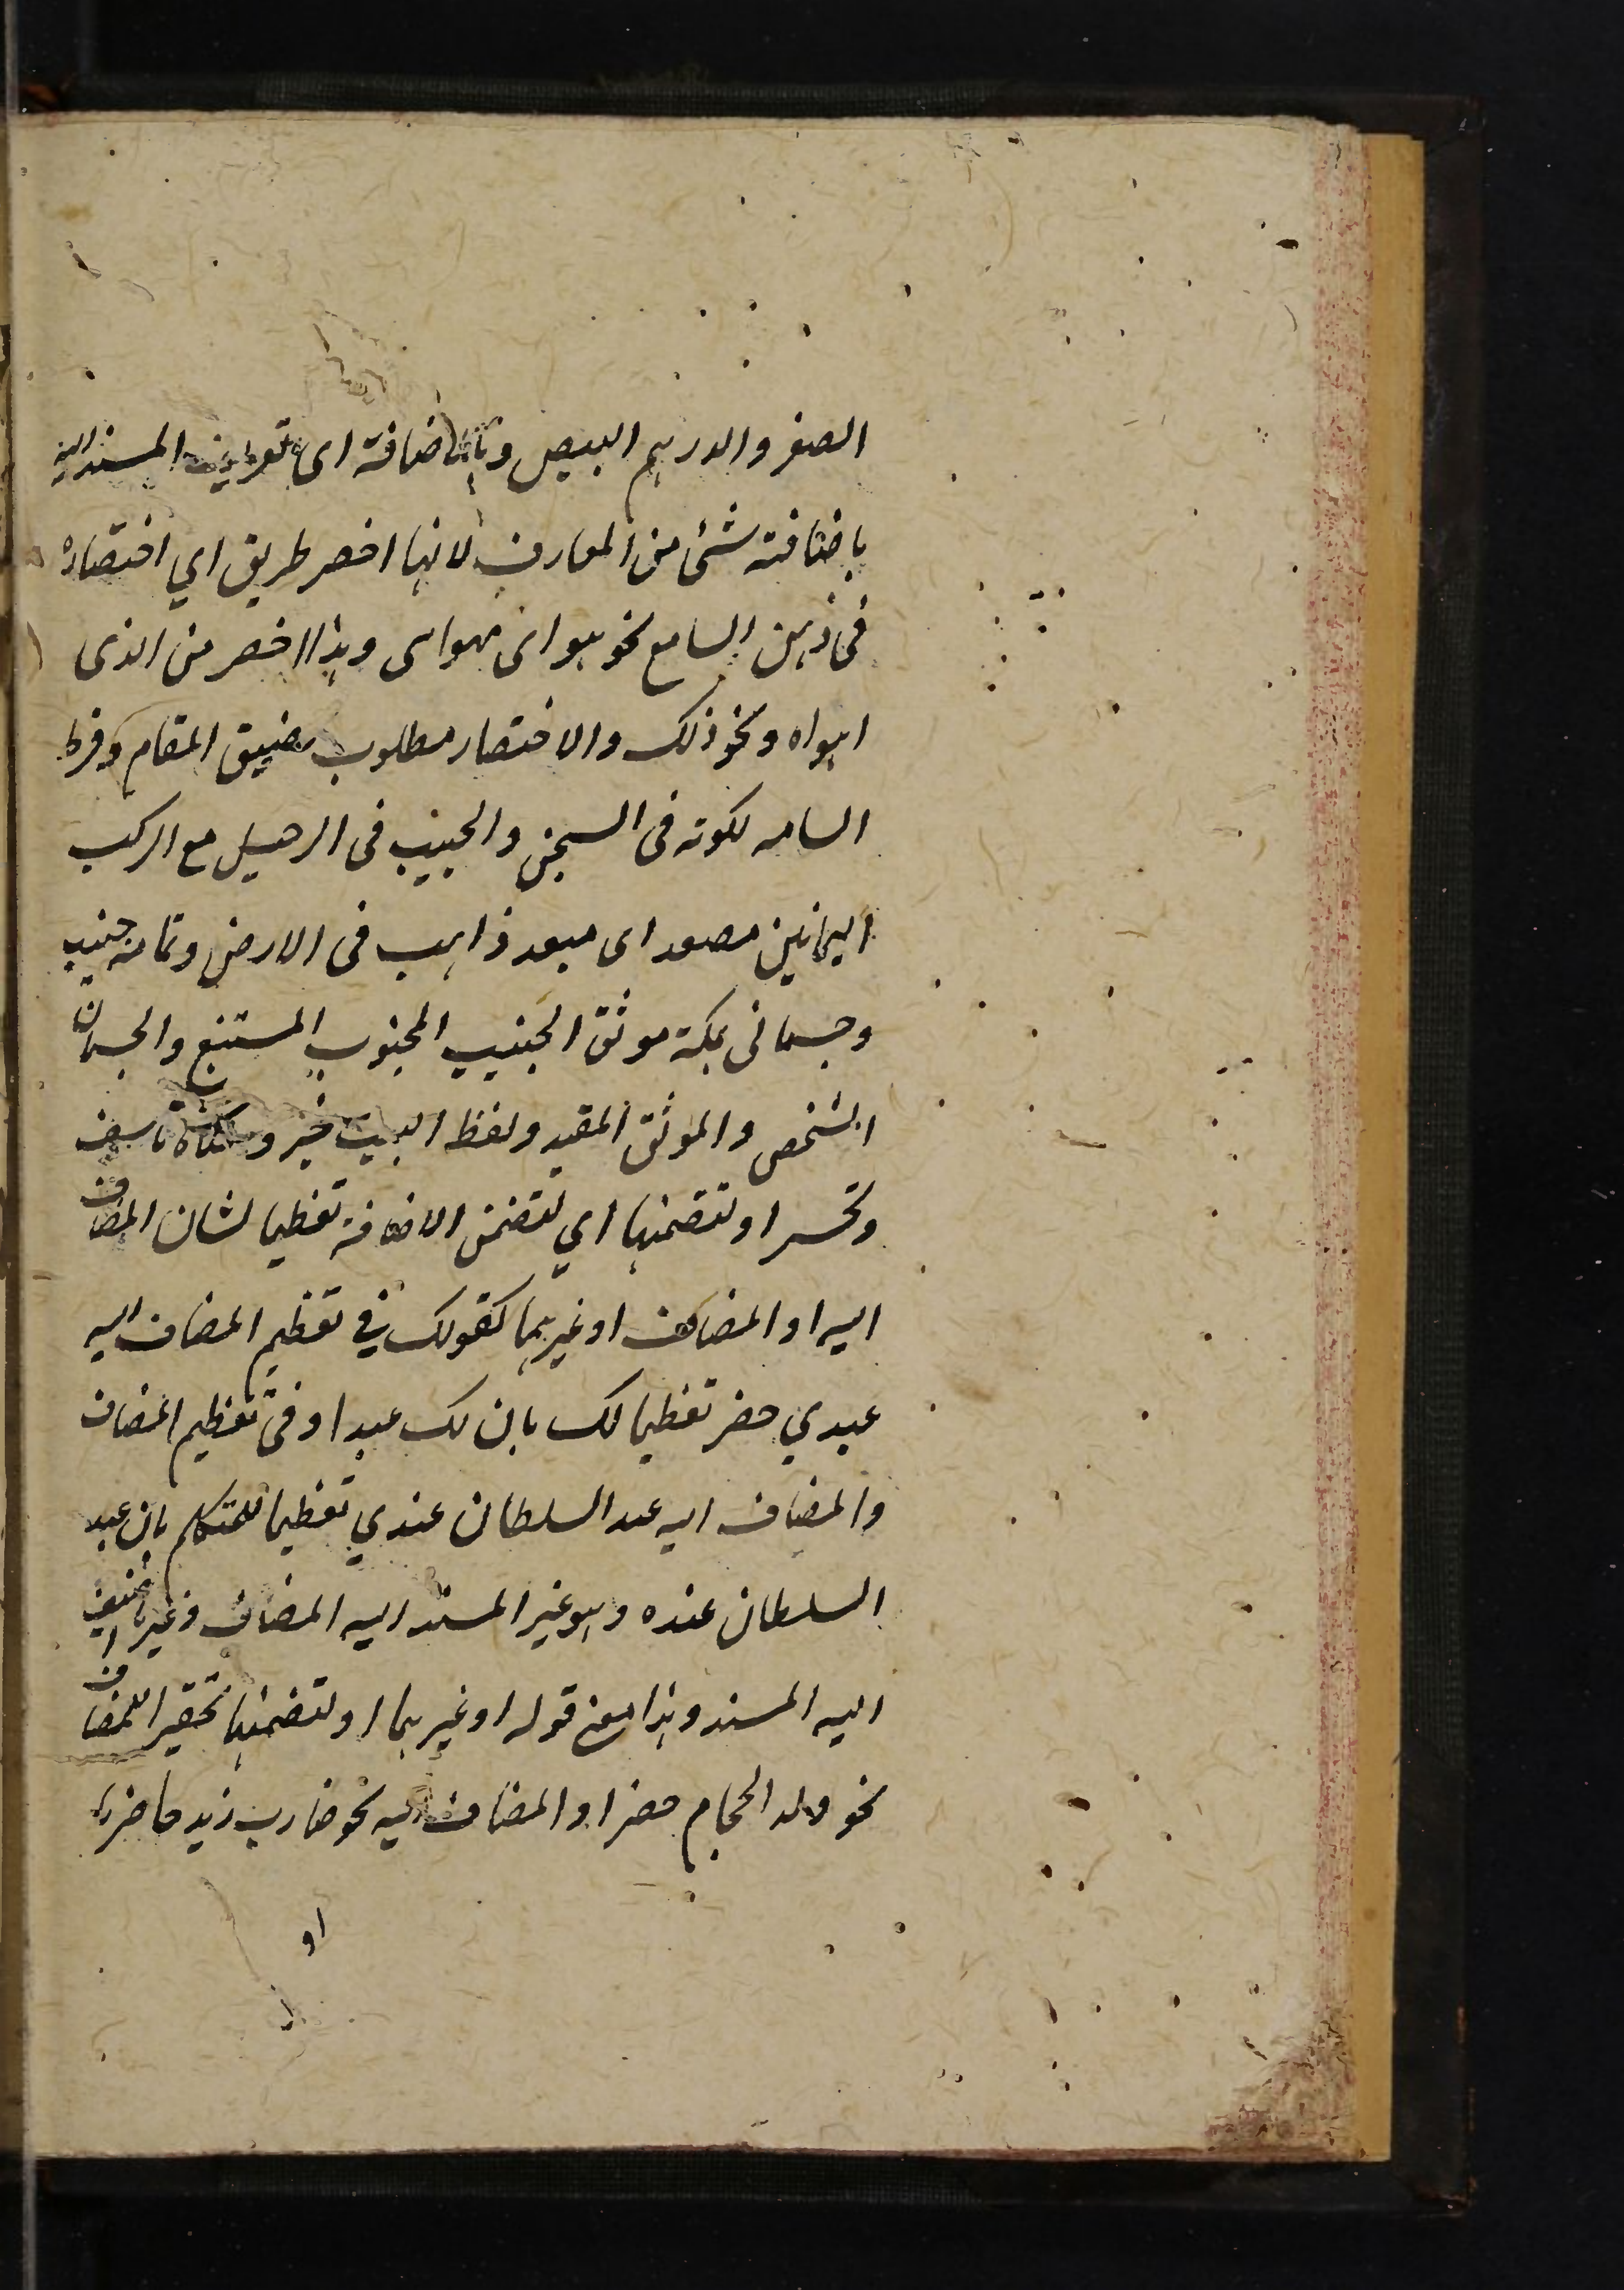 الصفر والدرهم البيض وبالاضافة اى تعريف المسند اليه
باضافته شئ من المعارف لانها اخصر طريق اي احتضاره
فى ذهن السامع نحو هواى فهواى وهذا اخصر من الذى
اهواه ونحو ذلك والاختصار مطلوب لضيق المقام وفرط
السامه لكونه فى السجن والحبيب فى الرحيل مع الركب
اليمانين مصعد اى مبعد ذاهب فى الارض وتمامه جنيب
وجسمانى بمكة موثق الجنيب المجنوب المستتبع والجسمان
الشخص والموثق المقيد ولفظ البيت خبر ومعناه تاسف
وتحسر او لتضمنها اي لتضمن الاضافة تعظيما لشان المضاف
اليه او المضاف او غيرهما كقولك في تعظيم المضاف اليه
عبدي حضر تعظيما لك بان لك عبدا وفى تعظيم المضاف
والمضاف اليه عبد السلطان عندي تعظيما للمتكلم بان عبد
السلطان عنده وهو غير المسند اليه المضاف وغير ما اضيف
اليه المسند وهذا معنى قوله او غيرهما او لتضمنها تحقيرا للمضاف
نحو ولد الحجام حضر او المضاف اليه نحو ضارب زيد حاضر
او